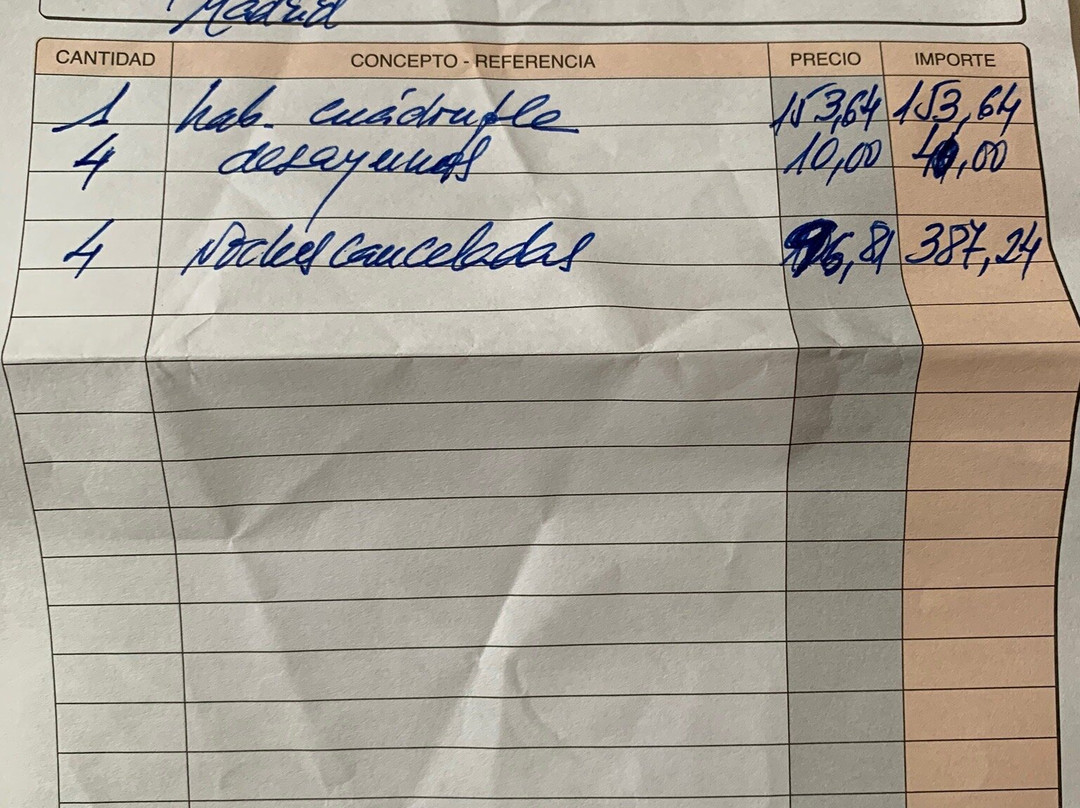 Madrid
CANTIDAD CONCEPTO - REFERENCIA PRECIO IMPORTE
1 hab. cuádruple 153,64 153,64
4 desayunos 10,00 40,00
4 Noches canceladas 96,81 387,24